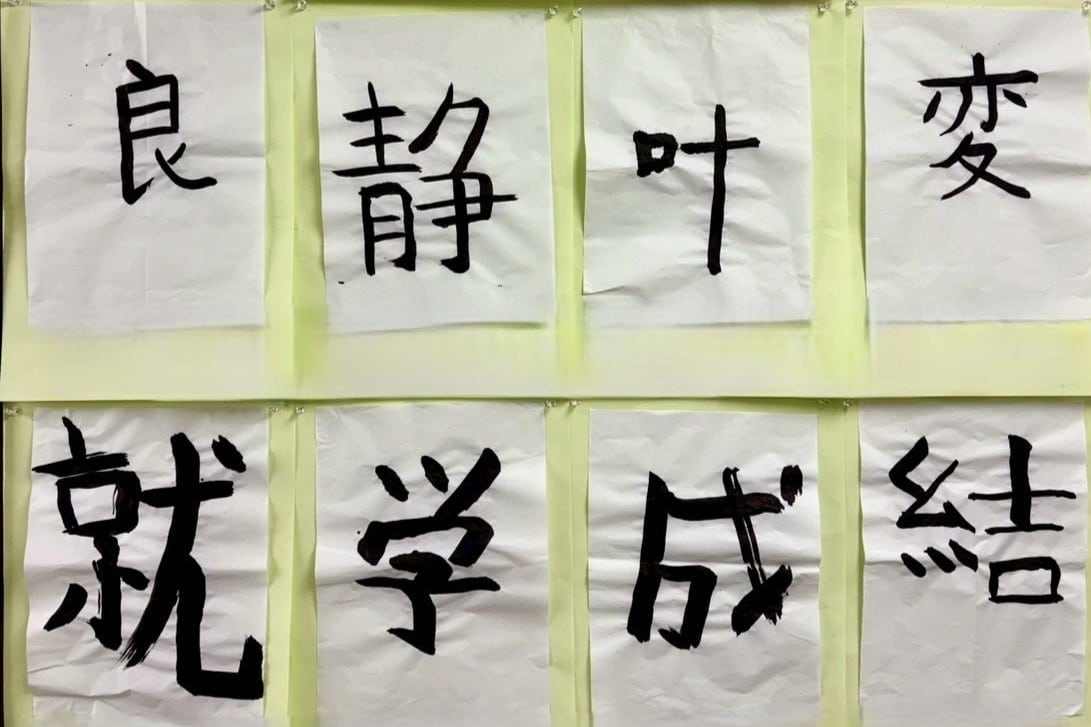 良 静 叶 変
就 学 成 結